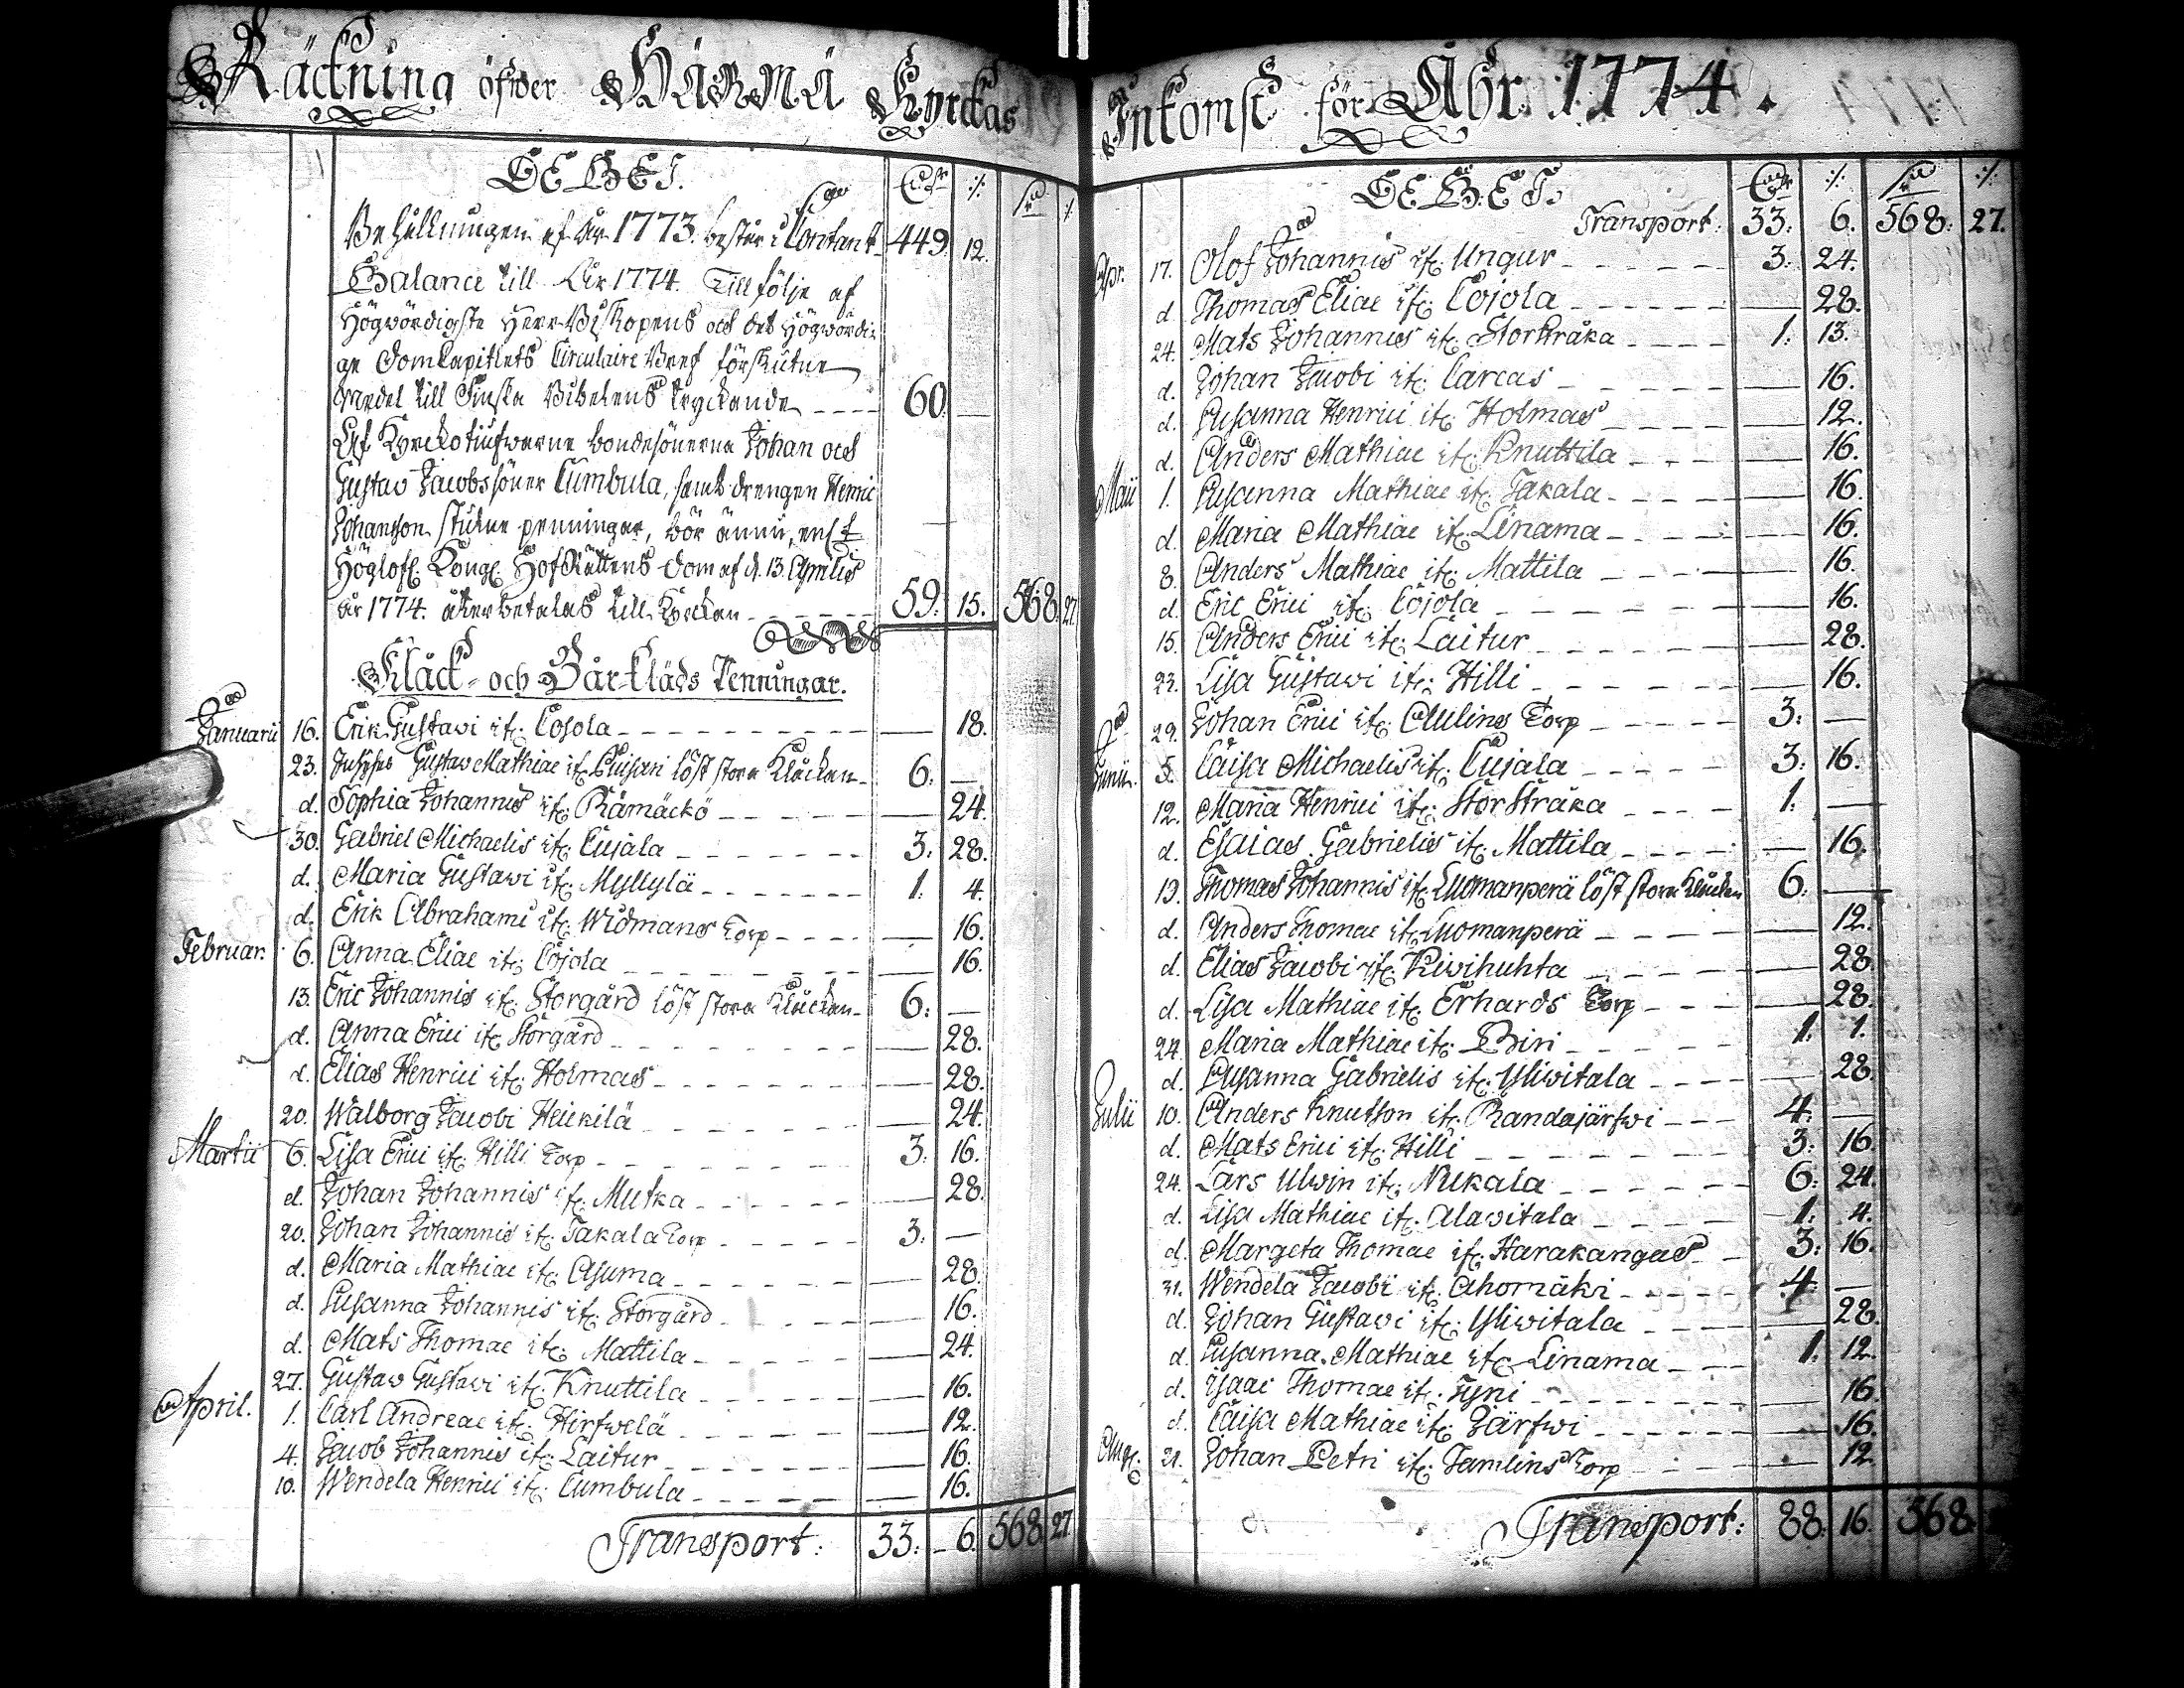 Räckning öfwer Härmä Kyrckas
DEBET.
Behållningen af år 1773. består i Contant 449 12.
Balance till år 1774. Till följe af
Högwördigste Herr Biskopens och det Högwördi-
ge DomCapitlets Circulaire Bref förskutne
Medel till Finska Bibelens tryckande 60
Af Kyrckotiufwarne bondesönerne Johan och
Gustav Jacobssöner Cumbula, samt drengen Henric
Johansson stulne penningar, bör ännu, enl
Höglofl. Kongl. HofRättens dom af d. 13. Aprilis
år 1774. återbetalas till Kyrckan 59. 15. 568. 27.
Kläck- och Bårkläds Penningar.
Januarii 16. Erik Gustavi if. Cojola 18.
23. Gustav Mathiae if. löst stora Klåckan 6.
d. Sophia Johannis if. Rämäckö 24.
30. Gabriel Michaelis if. Cujala 3. 28.
d. Maria Gustavi if. Myllylä 1. 4.
d. Erik Abrahami if. Widmans Torp 16.
Februar. 6. Anna Eliae if. Cojola 16.
13. Eric Johannis if. Storgård löst stora Klåckan 6.
d. Anna Erici if. Storgård 28.
d. Elias Henrici if. Holmas 28.
20. Walborg Jacobi Heickilä 24.
Martii 6. Lisa Erici if. Hilli Torp 3. 16.
d. Johan Johannis if. Mutka 28.
20. Johan Johannis if. Takala Torp 3.
d. Maria Mathiae if. Asuma 28.
d. Susanna Johannis if. Storgård 16.
d. Mats Thomae if. Mattila 24.
27. Gustav Gustavi if. Knuttila 16.
April. 1. Carl Andreae if. Hirfwelä 12.
4. Jacob Johannis if. Laitur 16.
10. Wendela Henrici if. Cumbula 16.
Transport: 33: 6. 568 27
Inkomst för Åhr 1774.
DEBET.
Transport: 33: 6. 568: 27.
Apr. 17. Olof Johannis if. Ungur 3: 24.
d. Thomas Eliae if. Cojola 28.
24. Mats Johannis if. Storstråka 1: 13.
d. Johan Jacobi if. Carcas 16.
d. Susanna Henrici if. Holmas 12.
d. Anders Mathiae if. Knuttila 16.
Maii 1. Susanna Mathiae if. Takala 16.
d. Maria Mathiae if. Linama 16.
8. Anders Mathiae if. Mattila 16.
d. Eric Erici if. Cojola 16.
15. Anders Erici if. Laitur 28.
23. Lisa Gustavi if. Hilli 16.
29. Johan Erici if. Torp 3:
Junii 5. Caisa Michaelis if. Cujala 3: 16.
12. Maria Henrici if. Storstråka 1:
d. Esaias Gabrielis if. Mattila 16.
19. Thomas Johannis if. Luomanperä löst stora Klåckan 6:
d. Anders Thomae if. Luomanperä 12.
d. Elias Jacobi if. Kiwihuhta 28.
d. Lisa Mathiae if. Erhards Torp 28.
24. Maria Mathiae if. Biri 1. 1.
d. Susanna Gabrielis if. Yliwitala 28.
Julii 10. Anders Knutson if. Randajärfwi 4:
d. Mats Erici if. Hilli 3: 16.
24. Lars Ulwin if. Nukala 6: 24.
d. Lisa Mathiae if. Alawitala 1: 4.
d. Margeta Thomae if. Harakangas 3: 16.
31. Wendela Jacobi if. Ahomäki 4:
d. Johan Gustavi if. Yliwitala 28.
d. Susanna Mathiae if. Linama 1: 12.
d. Isaac Thomae if. Tyni 16.
d. Caisa Mathiae if. Järfwi 16.
Aug. 21. Johan Petri if. Tamlins Torp 12.
Transport: 88: 16. 568